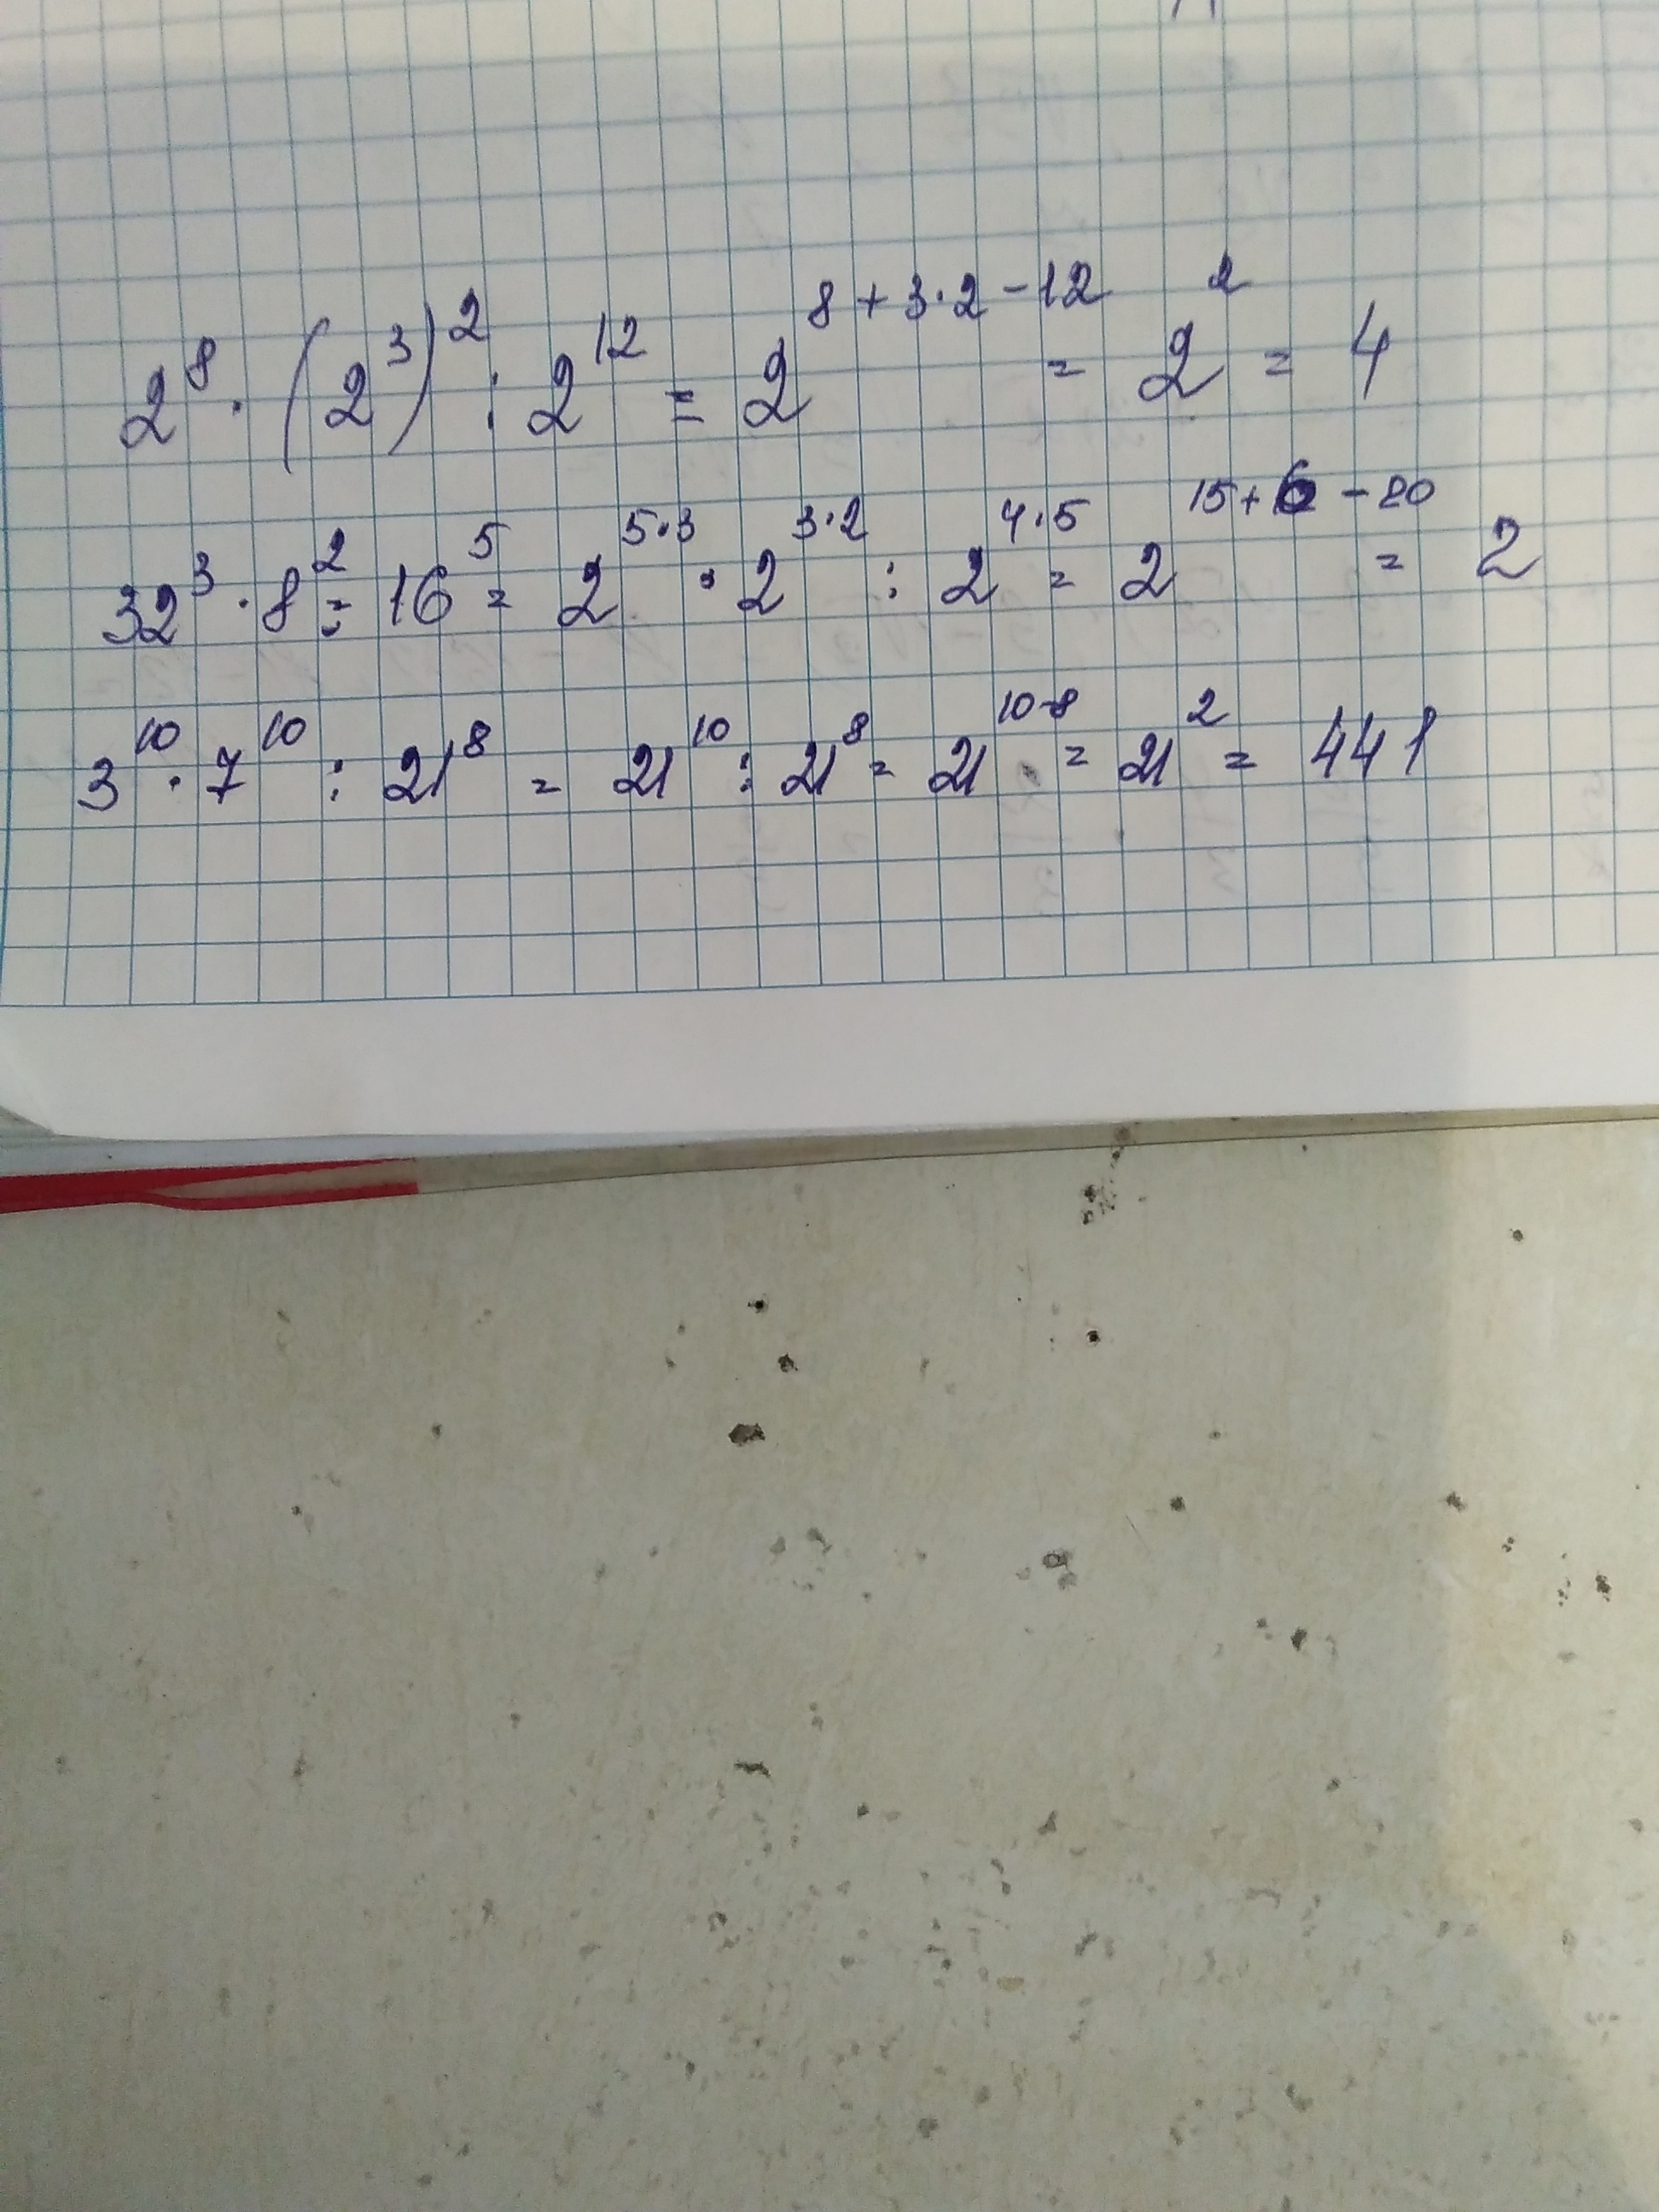 2⁸ · (2³)² : 2¹² = 2⁸⁺³·²⁻¹² = 2² = 4
32³ · 8² : 16⁵ = 2⁵·³ · 2³·² : 2⁴·⁵ = 2¹⁵⁺⁶⁻²⁰ = 2
3¹⁰ · 7¹⁰ : 21⁸ = 21¹⁰ : 21⁸ = 21¹⁰⁻⁸ = 21² = 441